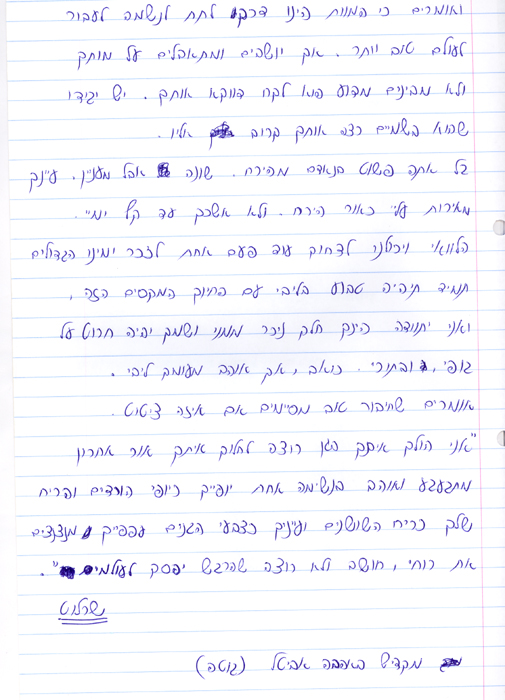 ואומרים כי המוות הינו דרך לתת לנשמה לעבור
לעולם טוב יותר. אך יושבים ומתאבלים על מותך
ולא מבינים מדוע הוא לקח דווקא אותך. יש יגידו
שהוא בשמיים רצה אותך קרוב אליו.
כל אתה פשוט בנאדם מהירח. שונה אבל מעניין. עיינך
מאירות עליי כאור הירח. ולא אשכח עד קץ ימיי.
הלוואי ויכולנו לצחוק עוד פעם אחת לזכר ימינו הגדולים
תמיד תיהיה טבוע בליבי עם החיוך המקסים הזה,
ואני יתוודה הינך חלק ניכר ממני ושמך יהיה חרוט על
גופי, ובתוכי. כואב, אך אוהב מעומק ליבי.
אומרים שחיבור טוב מסיימים אם איזה ציטוט.
"אני הולך איתך בגן רוצה לחלוק איתך אור אחרון
מתגעגע ואוהב בנשימה אחת יופייך כיופי הורדים והריח
שלך כריח השושנים ועיניך כצבעי הגנים עפפייך מנצנצים
את רוחי, חושב ולא רוצה שהרגש יפסק לעולמים".
שרלוט
מקדיש באהבה אביטל (גוטה)